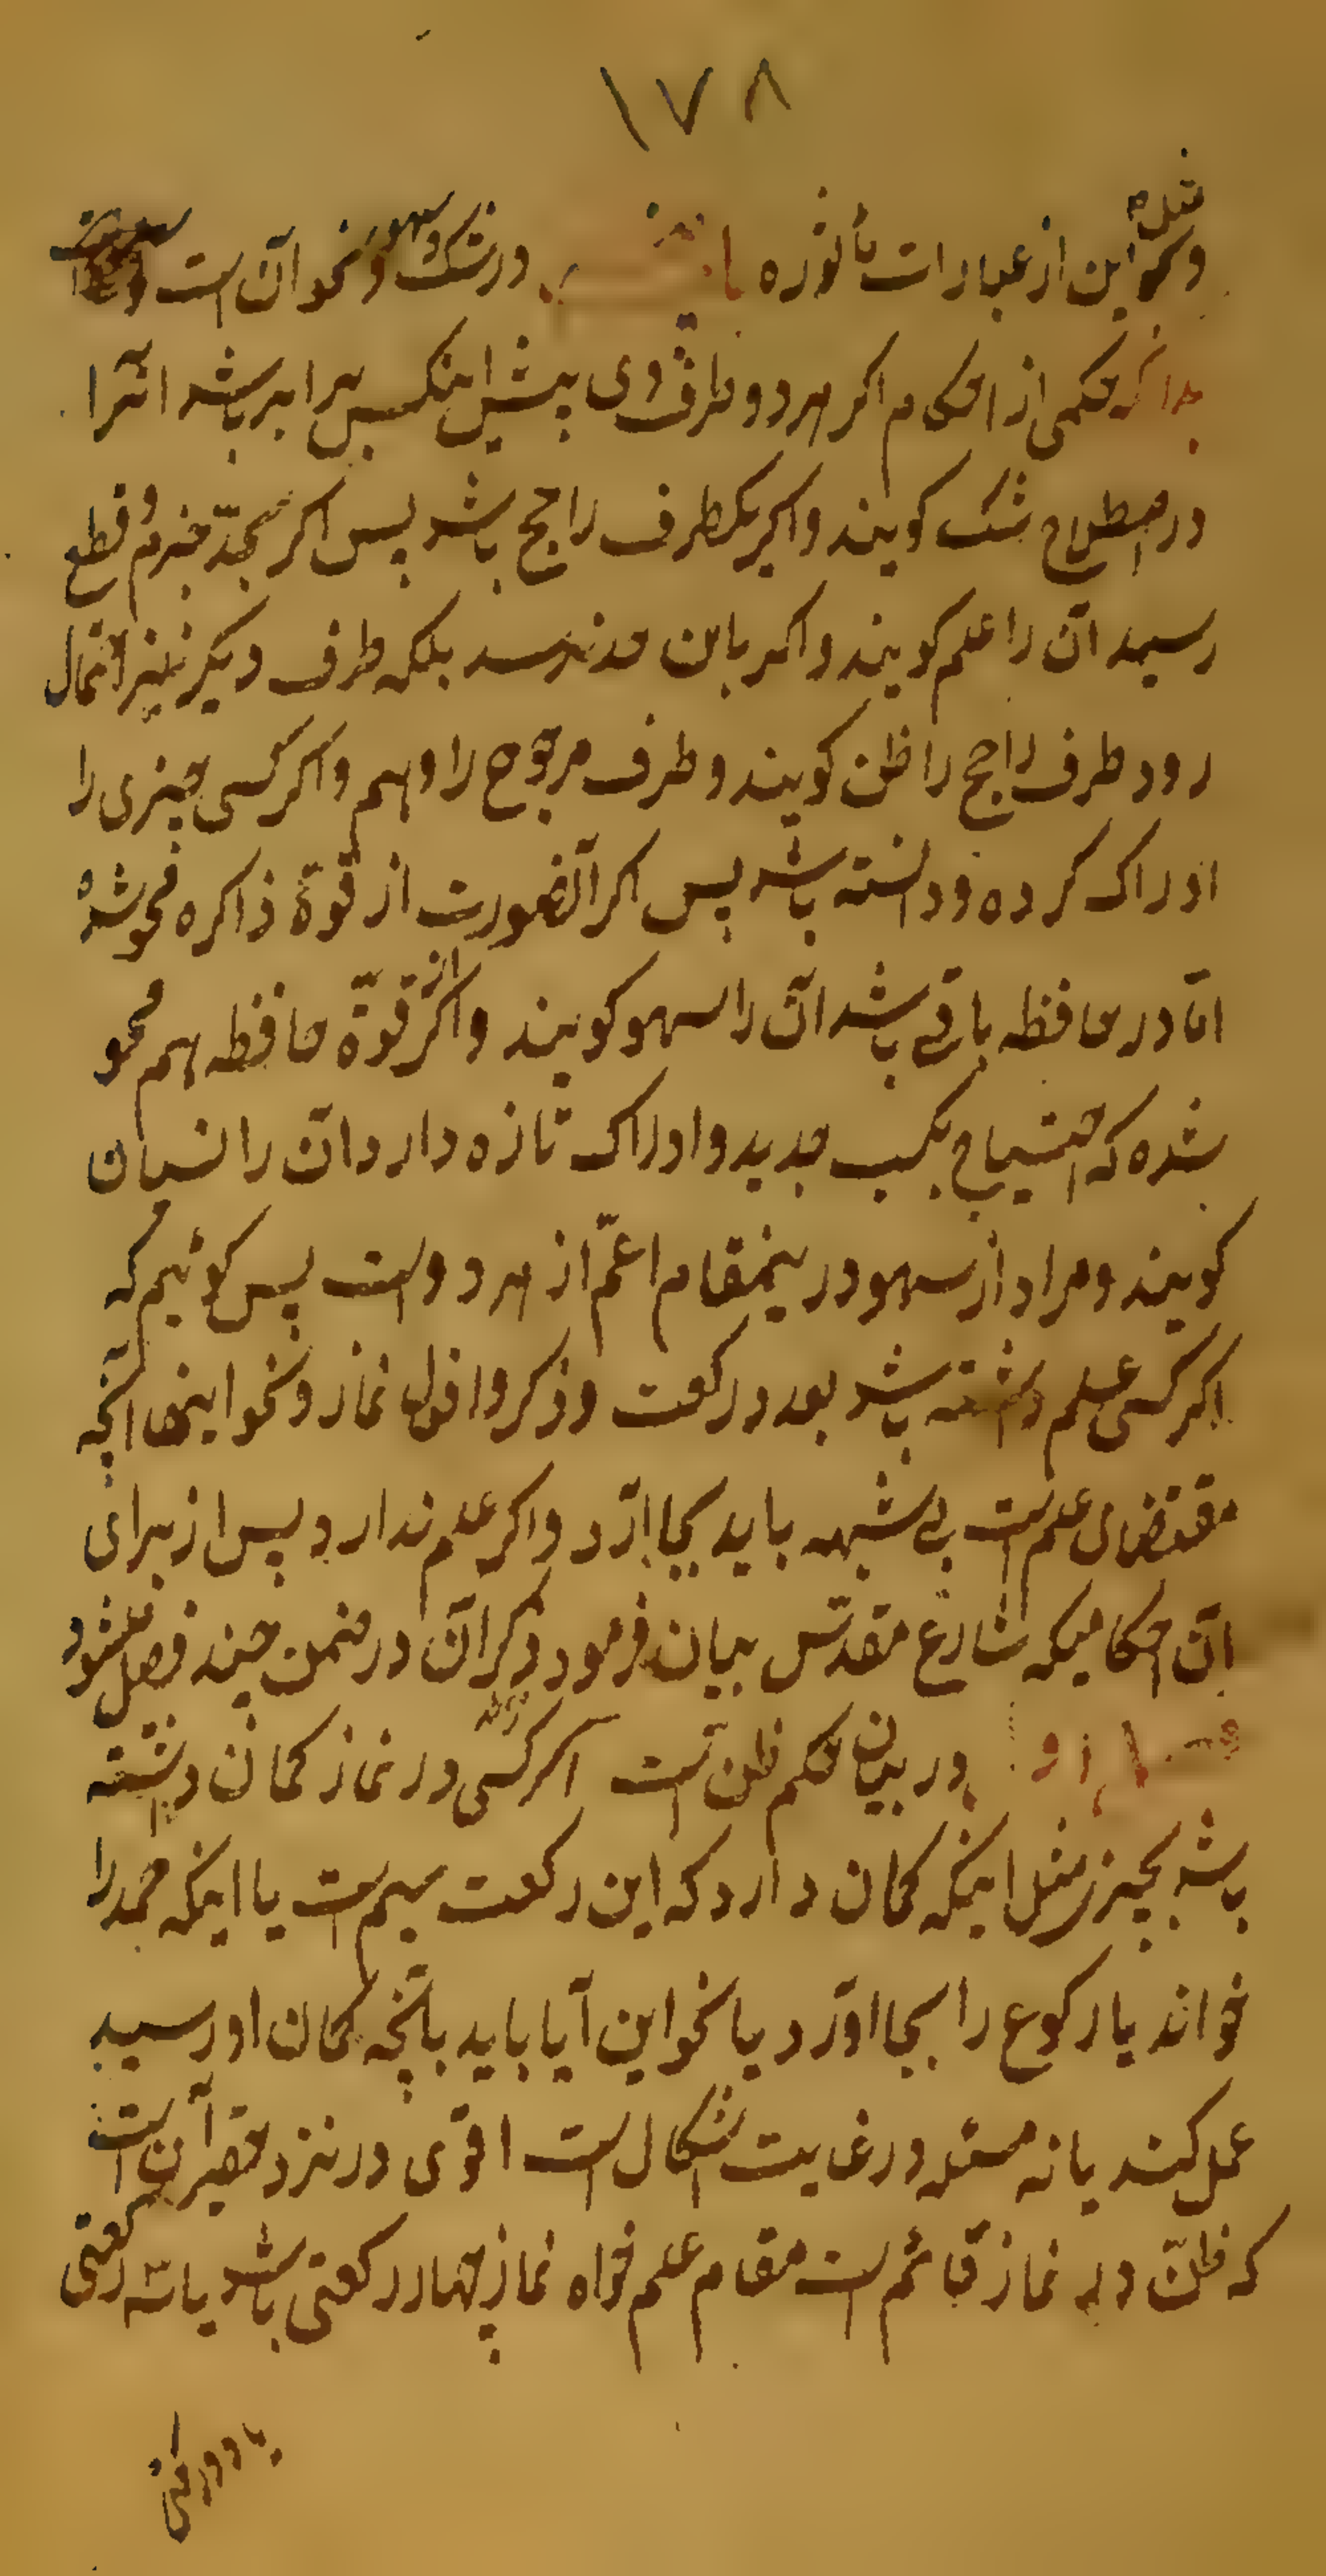 ١٧٨
و مثل این از عبارات مأثوره با در شک و سهو و نحو آن است و
بدانکه حکمی از احکام اکر هر دو طرف وی پیش اینکس برابر باشد انرا
در اصطلاح شک کویند و اکر یکطرف راجح باشد پس اکر بحدّ جزم و قطع
رسید آن را علم کویند و اکر باین حد نرسد بلکه طرف دیکر نیز احتمال
رود طرف راجح را ظن کویند و طرف مرجوح را وهم و اکر کسی چیزی را
ادراک کرده و دانسته باشد پس اکر آنصورت از قوّة ذاکره محو شده
امّا در حافظه باقی باشد آن را سهو کویند و اکر از قوّة حافظه هم محو
شده که احتیاج بکسب جدید و ادراک تازه دارد آن را نسیان
کویند و مراد از سهو در ینمقام اعمّ از هر دو است پس کوئیم که
اکر کسی علم داشته باشد بعدد رکعت و ذکر و افعال نماز و نحو اینها آنچه
مقتضای علم است بی شبهه باید بجا آرد و اکر علم ندارد پس از برای
آن احکامیکه شارع مقدّس بیان فرمود ذکر آن در ضمن چند فصل میشود
فصل او در بیان حکم ظن است اکر کسی در نماز کمان داشته
باشد بچیزی مثل اینکه کمان دارد که این رکعت سیم است یا اینکه حمد را
خواند یا رکوع را بجا آورد یا نحو این آیا باید بآنچه کمان او رسید
عمل کند یا نه مسئله در غایت اشکال است اقوی در نزد حقیر آن است
که ظنّ در نماز قائم است مقام علم خواه نماز چهار رکعتی باشد یا سه رکعتی
یا دو رکعتی